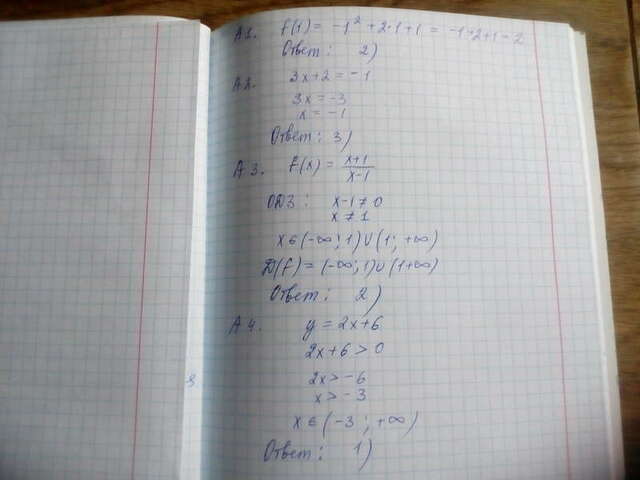 А1. f(1) = -1² + 2·1 + 1 = -1+2+1 = 2
Ответ: 2)
А2. 3x+2 = -1
3x = -3
x = -1
Ответ: 3)
А3. f(x) = (x+1)/(x-1)
ОДЗ: x-1 ≠ 0
x ≠ 1
x ∈ (-∞; 1) ∪ (1; +∞)
D(f) = (-∞; 1) ∪ (1+∞)
Ответ: 2)
А4. y = 2x+6
2x+6 > 0
2x > -6
x > -3
x ∈ (-3; +∞)
Ответ: 1)